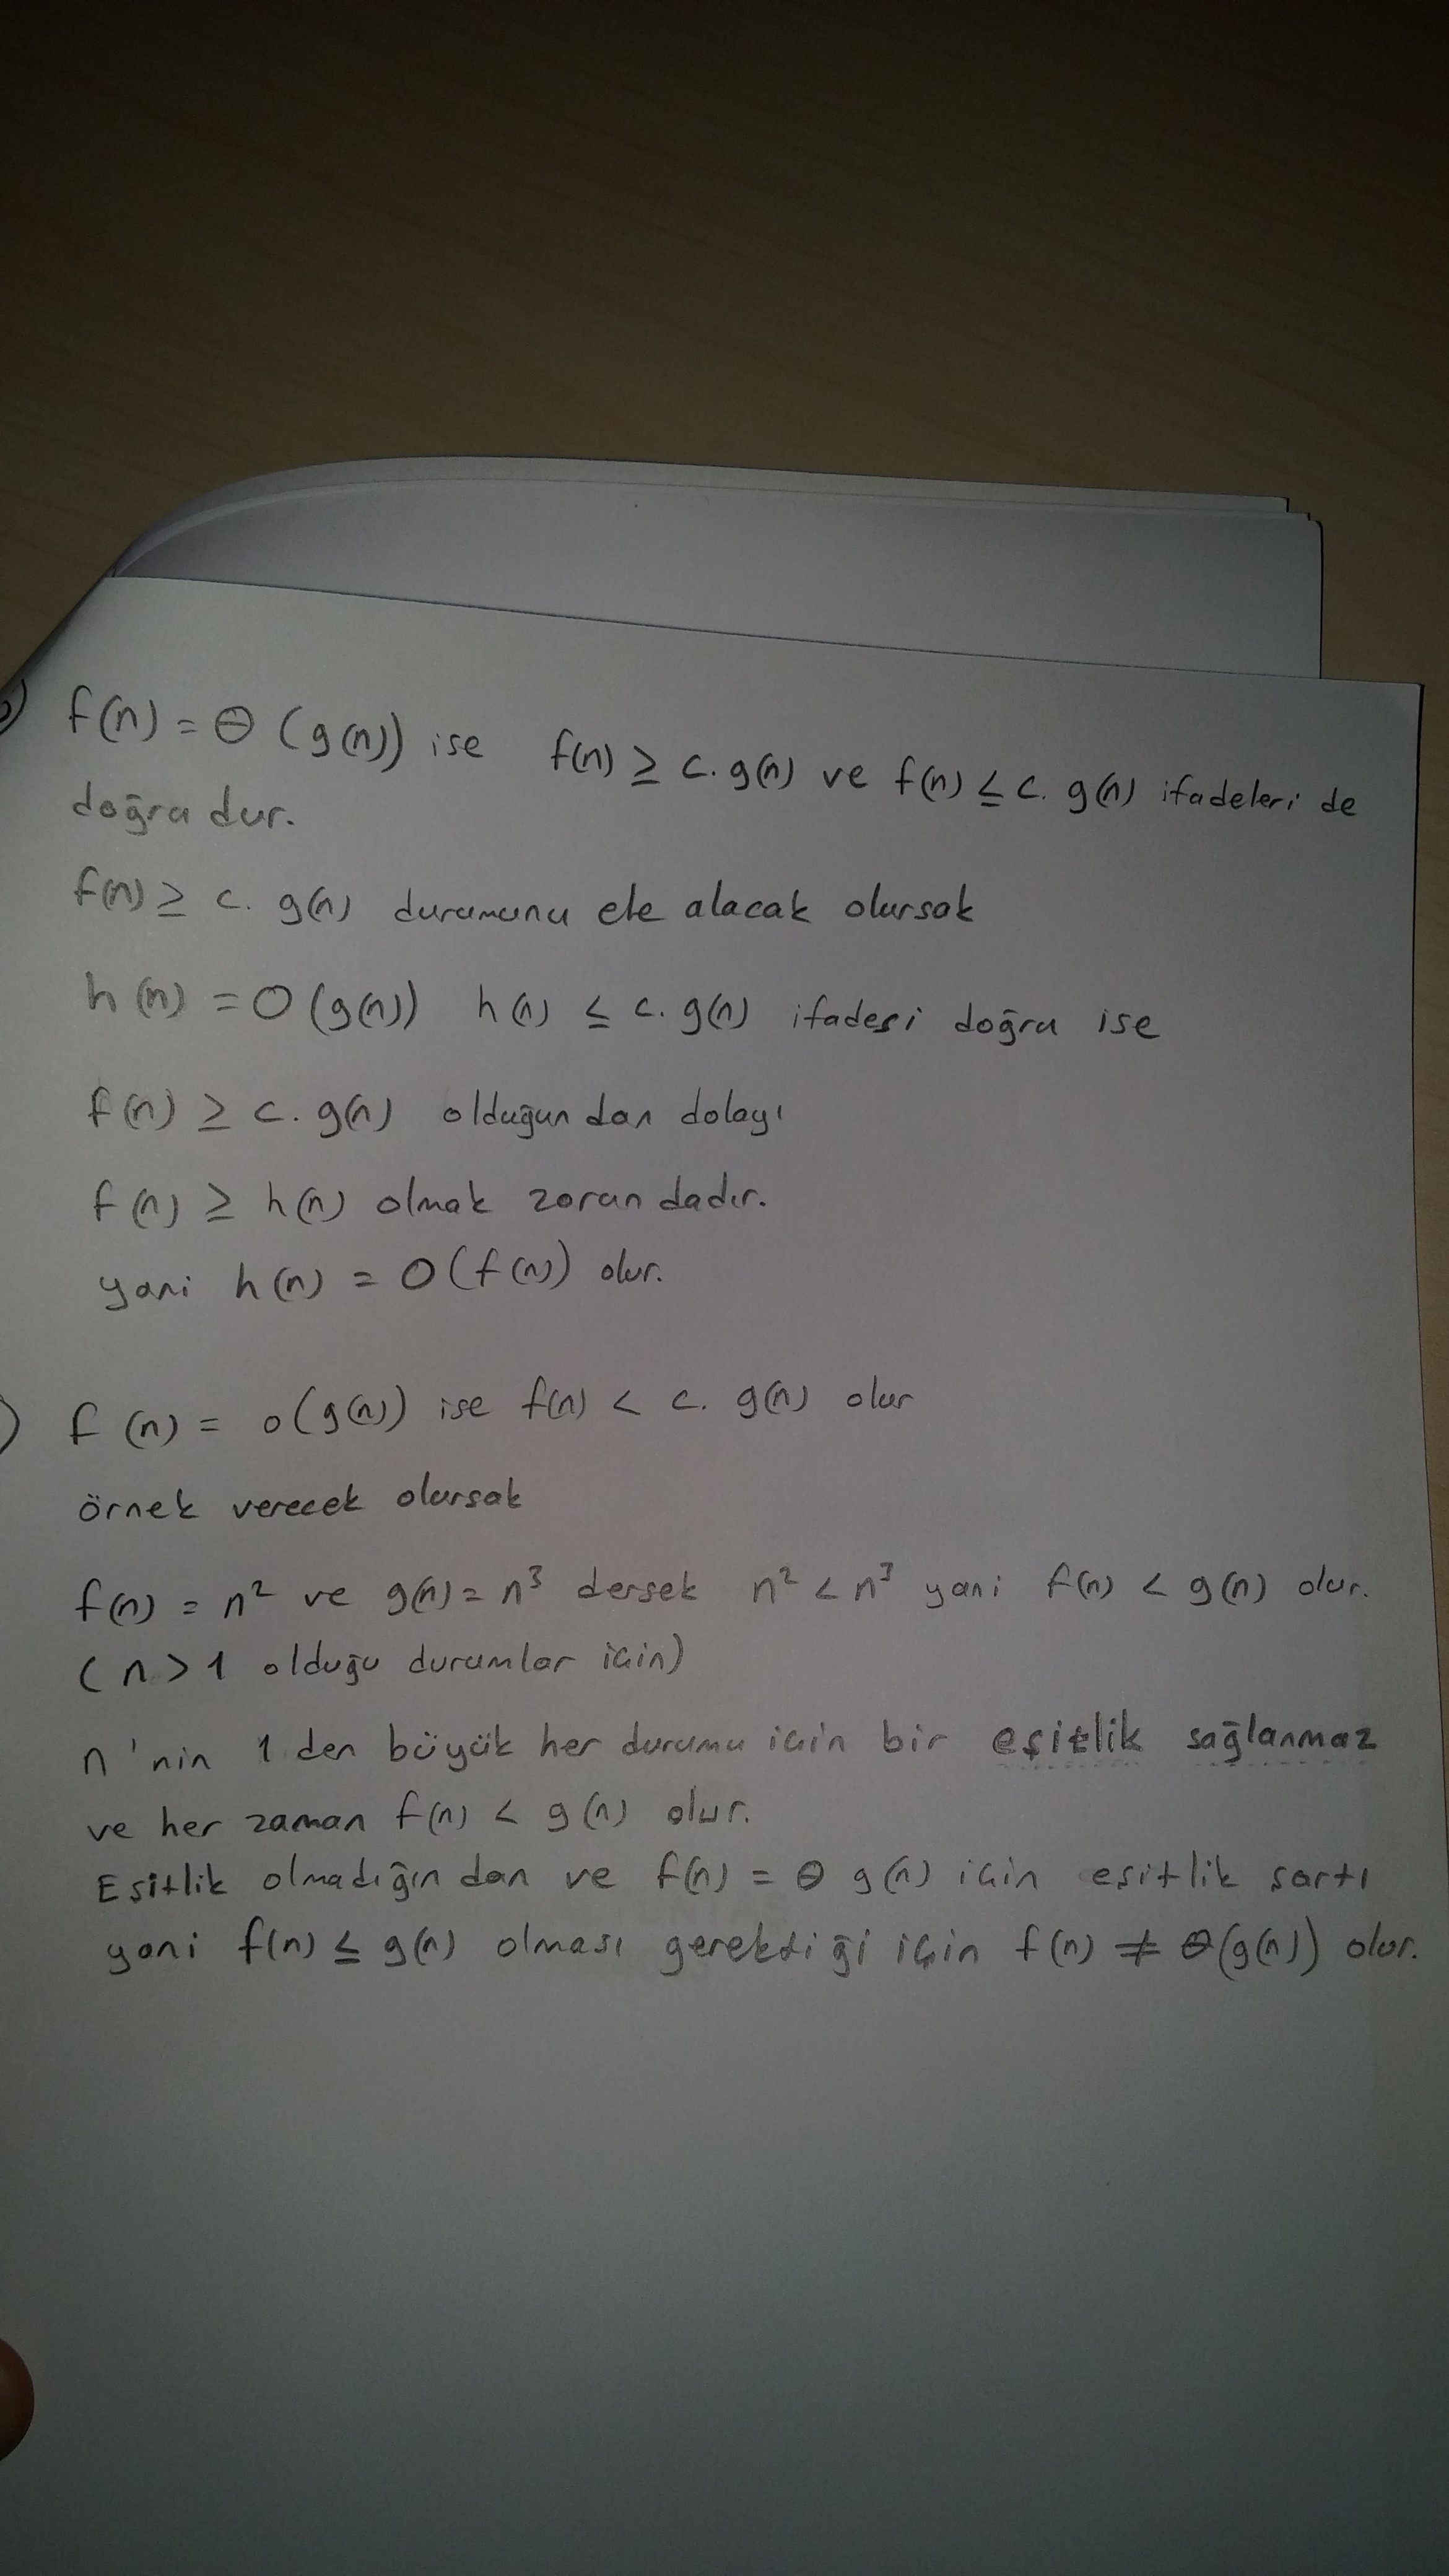 f(n) = Θ (g(n)) ise f(n) ≥ c. g(n) ve f(n) ≤ c. g(n) ifadeleri de
doğru dur.
f(n) ≥ c. g(n) durumunu ele alacak olursak
h(n) = O(g(n)) h(n) ≤ c. g(n) ifadesi doğru ise
f(n) ≥ c. g(n) olduğundan dolayı
f(n) ≥ h(n) olmak zorundadır.
yani h(n) = O(f(n)) olur.
) f(n) = o(g(n)) ise f(n) < c. g(n) olur
örnek verecek olursak
f(n) = n² ve g(n) = n³ dersek n² < n³ yani f(n) < g(n) olur.
(n > 1 olduğu durumlar için)
n'nin 1 den büyük her durumu için bir eşitlik sağlanmaz
ve her zaman f(n) < g(n) olur.
Eşitlik olmadığından ve f(n) = Θ g(n) için eşitlik şartı
yani f(n) ≤ g(n) olması gerektiği için f(n) ≠ Θ(g(n)) olur.